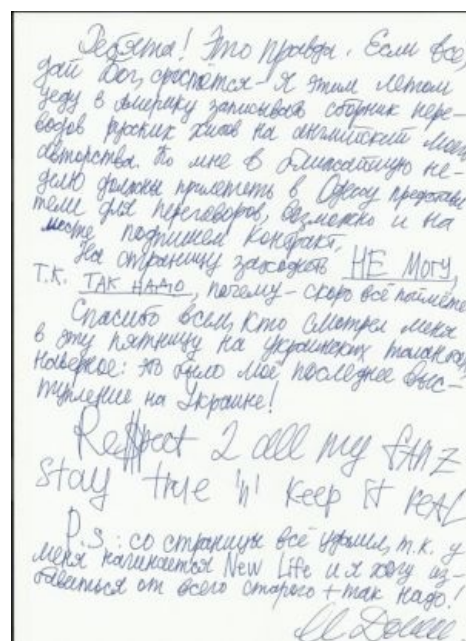 Ребята! Это правда. Если всё,
дай Бог, срастётся - я этим летом
уеду в Америку записывать сборник пере-
водов русских хитов на английский моего
авторства. Ко мне в ближайшую не-
делю должны прилететь в Одессу представи
тели для переговоров, возможно и на
месте подпишем контракт.
На страницу заходить НЕ МОГУ,
Т.К. ТАК НАДО, почему - скоро всё поймёте
Спасибо всем, кто смотрел меня
в эту пятницу на украинских талантах,
наверное: это было моё последнее выс-
тупление на Украине!
Re$pect 2 all my fanz
stay true 'n' keep it real
P.S.: со страницы всё удалил, т.к. у
меня начинается New Life и я хочу из-
бавиться от всего старого + так надо!